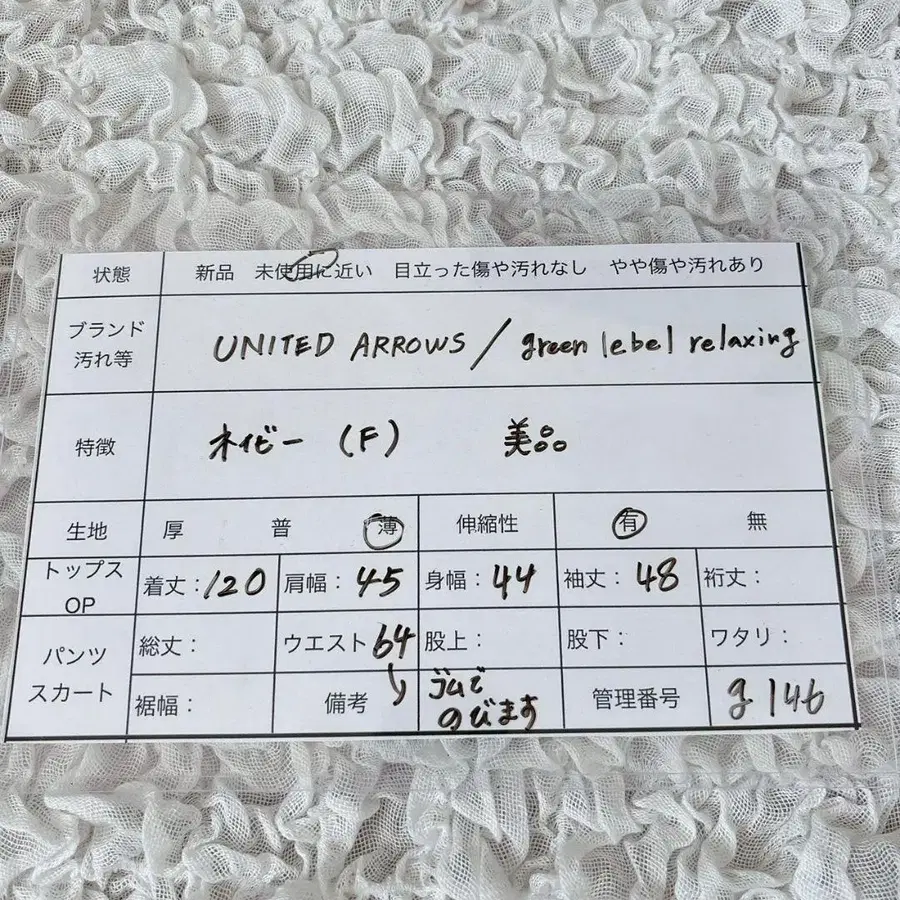 状態 新品 未使用に近い 目立った傷や汚れなし やや傷や汚れあり
ブランド
汚れ等
UNITED ARROWS / green lebel relaxing
特徴 ネイビー (F) 美品
生地 厚 普 薄 伸縮性 有 無
トップス
OP
着丈:120 肩幅:45 身幅:44 袖丈:48 裄丈:
パンツ
スカート
総丈: ウエスト 64 股上: 股下: ワタリ:
裾幅: 備考 ゴムで
のびます
管理番号 g146